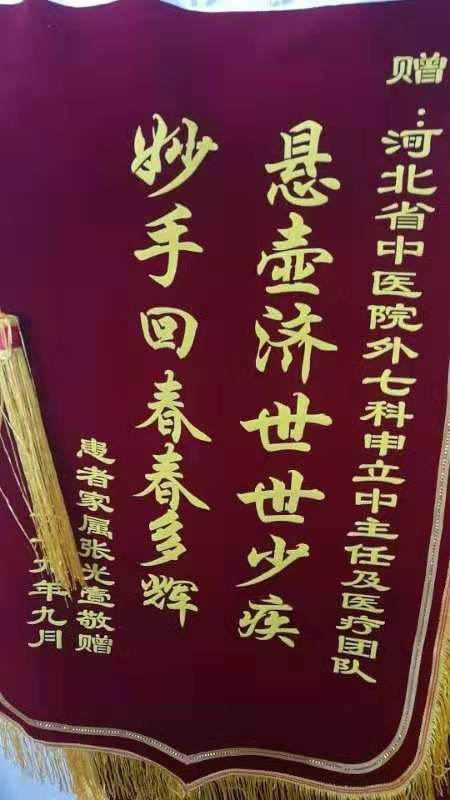 赠：河北省中医院外七科申立中主任及医疗团队
悬壶济世世少疾
妙手回春春多辉
患者家属张光壹敬赠
年九月